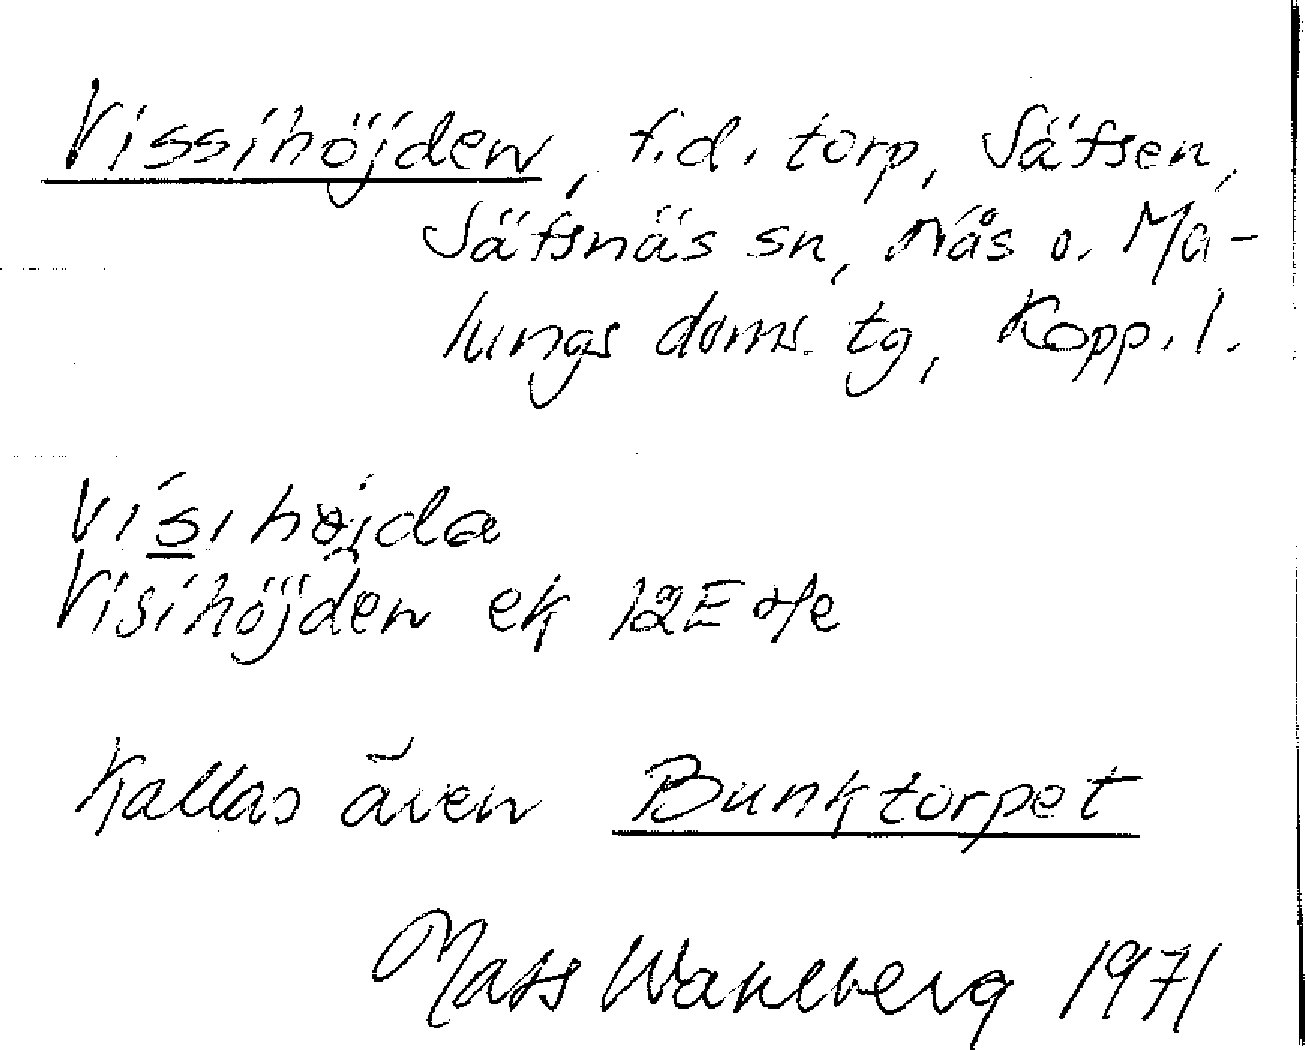 Vissihöjden, f.d. torp, Säfsen,
Säfsnäs sn, Nås o. Ma-
lungs doms. tg, Kopp. l.
Visihöjda
Visihöjden ek 12E o/e
Kallas även Bunktorpet
Mats Wahlberg 1971